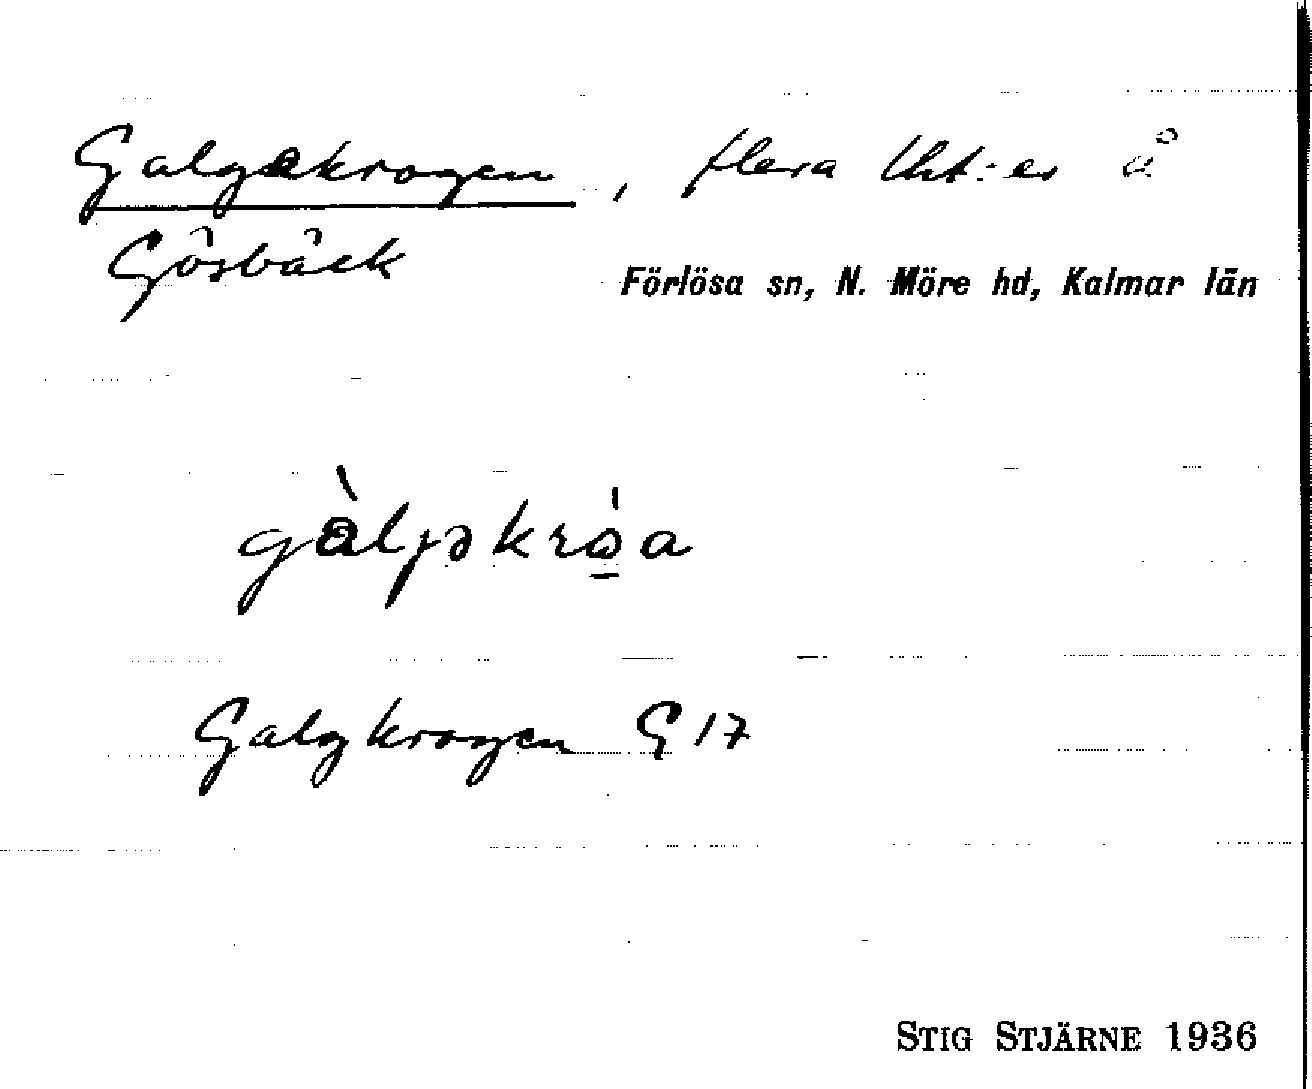 Galgekrogen, flera lht:er å
Gösbäck
Förlösa sn, N. Möre hd, Kalmar län
Galgkrogen G 17
STIG STJÄRNE 1936